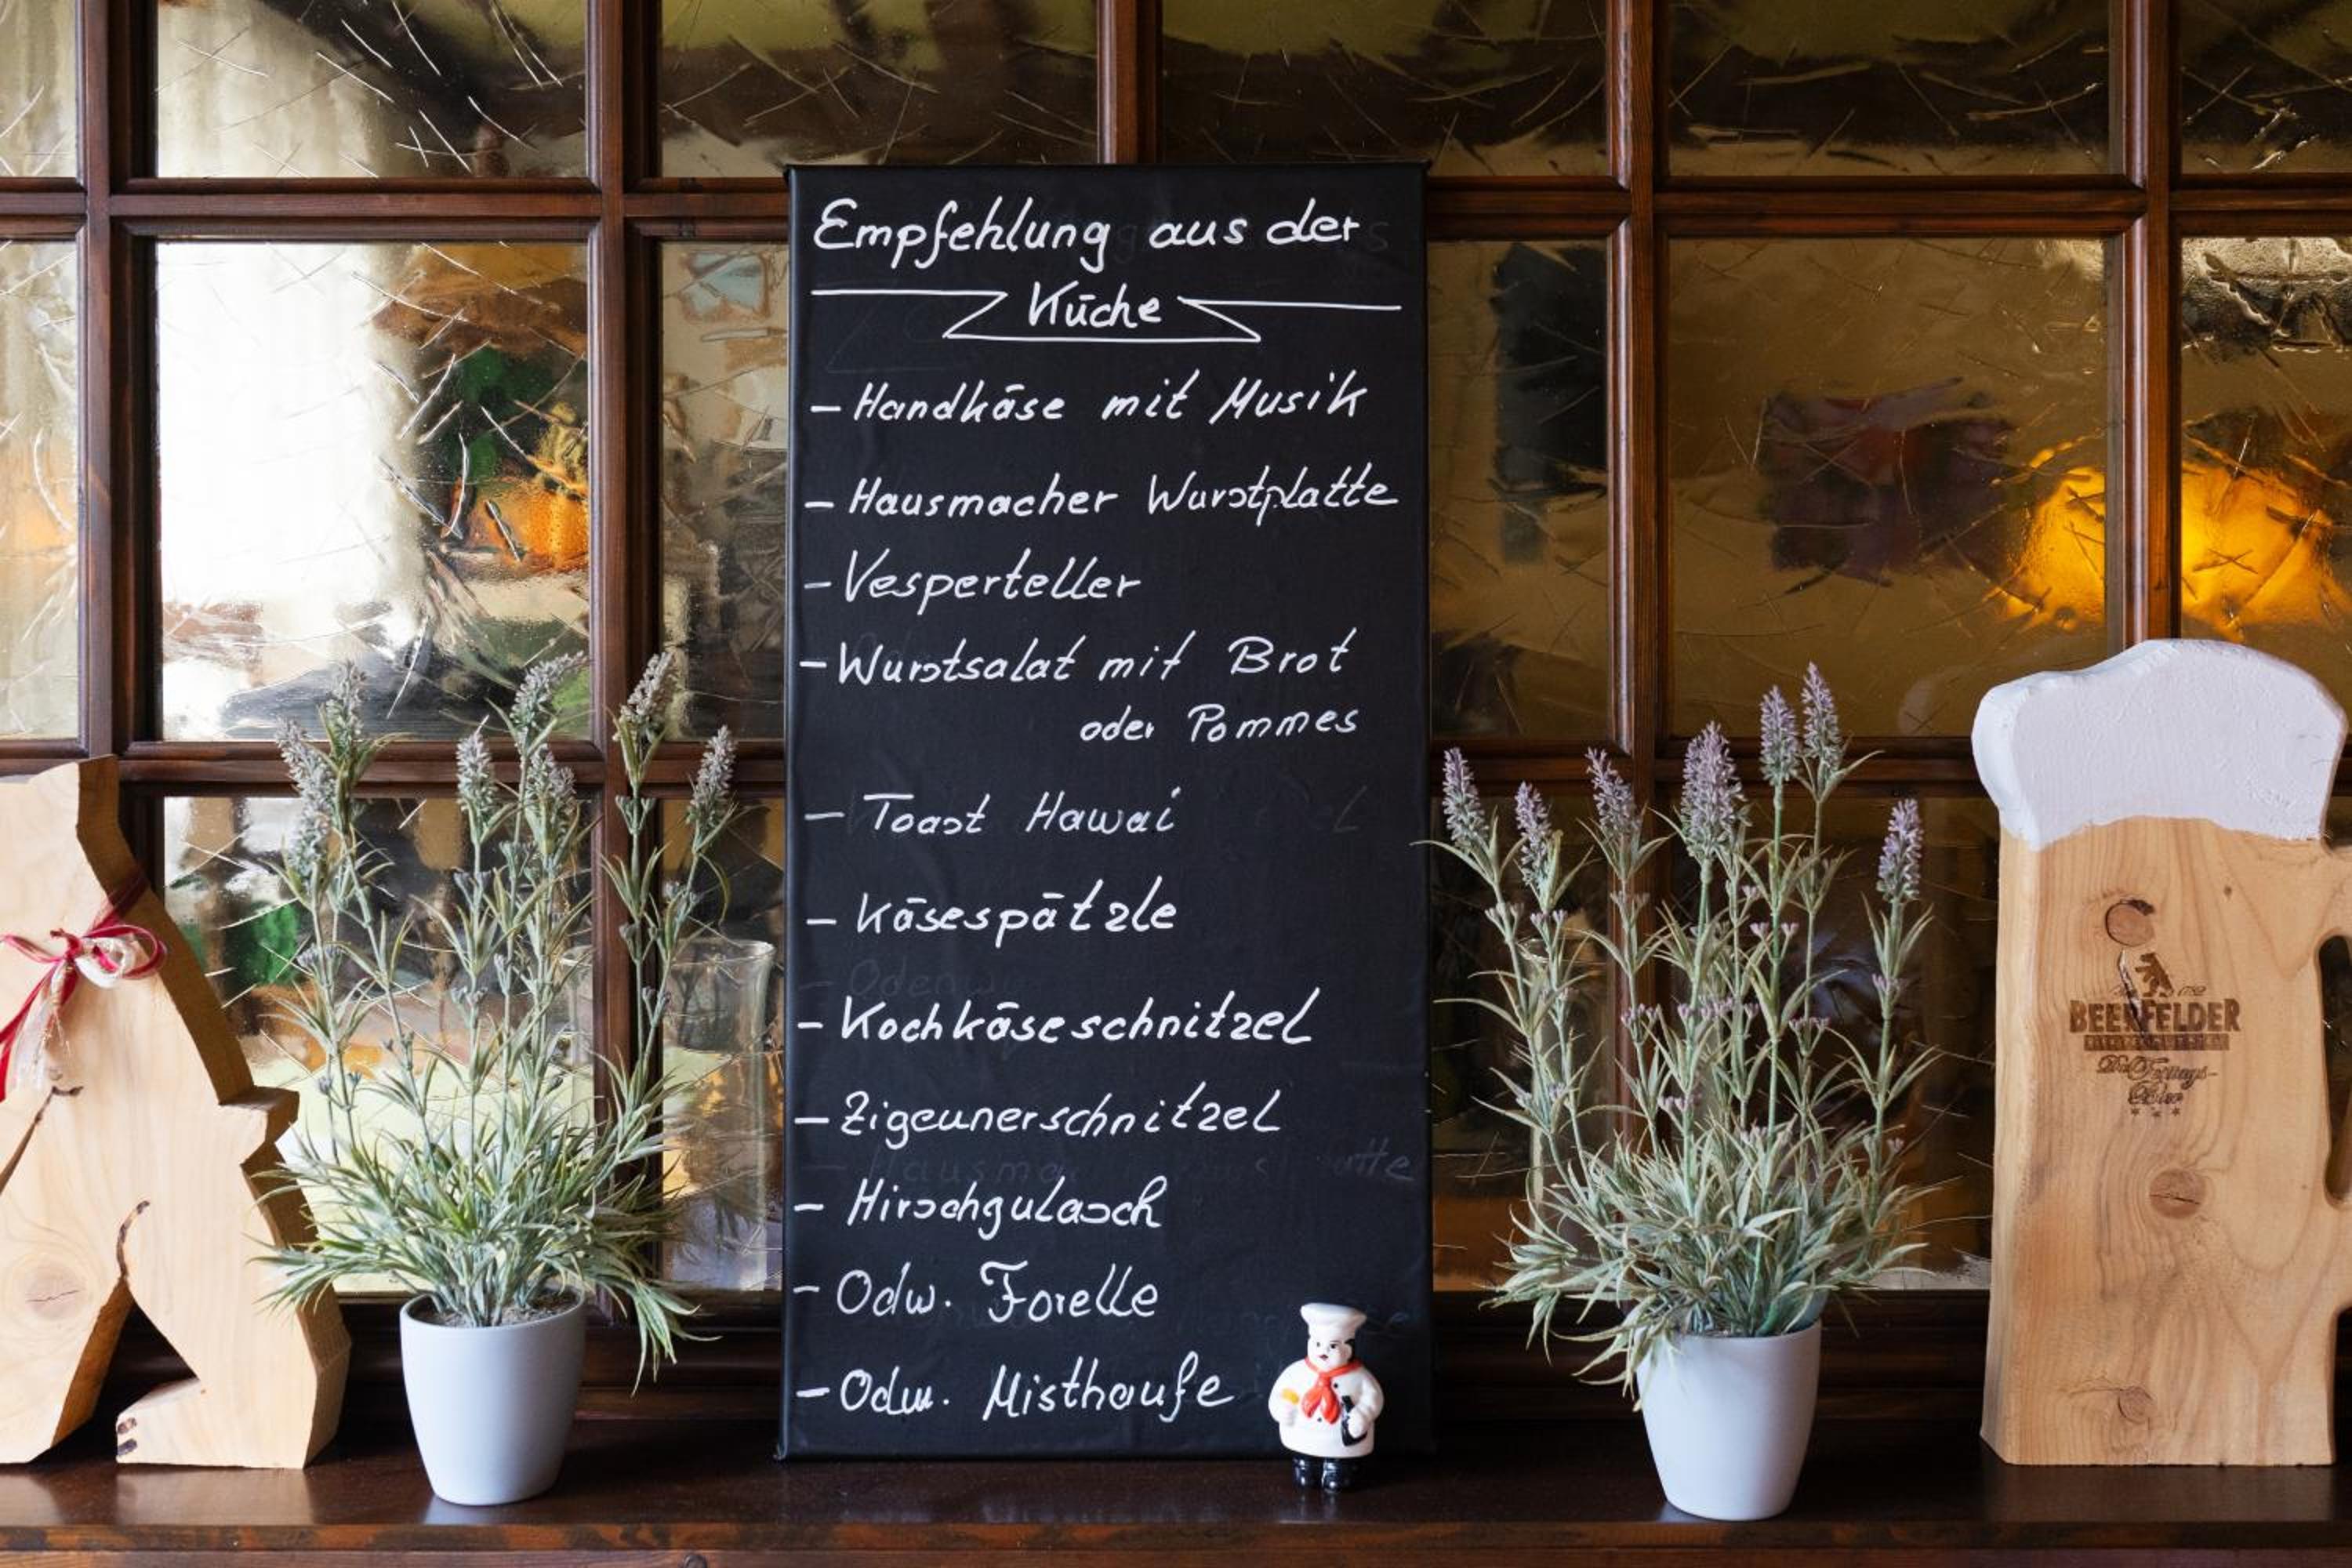 Empfehlung aus der
Küche
- Handkäse mit Musik
- Hausmacher Wurstplatte
- Vesperteller
- Wurstsalat mit Brot
oder Pommes
- Toast Hawai
- Käsespätzle
- Kochkäseschnitzel
- Zigeunerschnitzel
- Hirschgulasch
- Odw. Forelle
- Odw. Misthaufe
1782
BEERFELDER